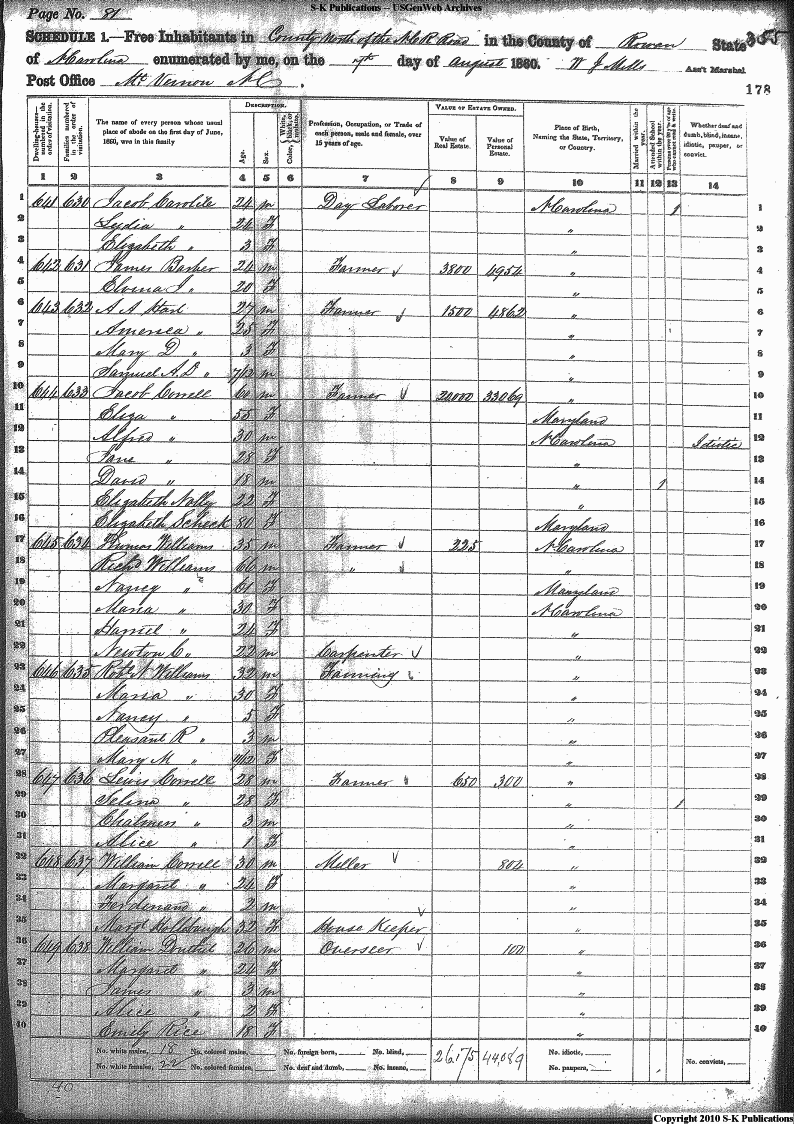 S-K Publications -- USGenWeb Archives
Page No. 81
SCHEDULE 1.—Free Inhabitants in County North of the N.C.R. Road in the County of Rowan State 355
of N Carolina enumerated by me, on the 7th day of August 1860. W J Mills Ass't Marshal
Post Office Mt Vernon N C.
178
Dwelling-houses—numbered in the order of visitation. Families numbered in the order of visitation. The name of every person whose usual place of abode on the first day of June, 1860, was in this family DESCRIPTION. Age. Sex. Color, White, black, or mulatto. Profession, Occupation, or Trade of each person, male and female, over 15 years of age. VALUE OF ESTATE OWNED. Value of Real Estate. Value of Personal Estate. Place of Birth, Naming the State, Territory, or Country. Married within the year. Attended School within the year. Persons over 20 y'rs of age who cannot read & write. Whether deaf and dumb, blind, insane, idiotic, pauper, or convict.
1 2 3 4 5 6 7 8 9 10 11 12 13 14
1 641 630 Jacob 24 m Day Laborer N Carolina 1 1
2 Lydia " 24 F " 2
3 Elizabeth " 3 F " 3
4 642 631 James Barber 24 m Farmer 3800 4954 " 4
5 Elvina J " 20 F " 5
6 643 632 A A Hart 27 m Farmer 1500 4862 " 6
7 America " 25 F " 7
8 Mary D " 3 F " 8
9 Samuel A.D " 7/12 m " 9
10 644 633 Jacob Correll 60 m Farmer 20,000 33069 " 10
11 Eliza " 55 F Maryland 11
12 Alfred " 30 m N Carolina Idiotic 12
13 Jane " 28 F " 13
14 David " 18 m " 1 14
15 Elizabeth 22 F " 15
16 Elizabeth 80 F Maryland 16
17 645 634 Thomas Williams 35 m Farmer 225 N Carolina 17
18 Richd Williams 60 m " " 18
19 Nancy " 61 F Maryland 19
20 Maria " 30 F N Carolina 20
21 Harriet " 24 F " 21
22 Newton C " 22 m Carpenter " 22
23 646 635 Robt N Williams 32 m Farming " 23
24 Maria " 30 F " 24
25 Nancy " 5 F " 25
26 Pleasant R " 3 m " 26
27 Mary M " F " 27
28 647 636 Lewis Correll 28 m Farmer 650 300 " 28
29 Selina " 28 F " 1 29
30 Chalmers " 3 m " 30
31 Alice " 1 F " 31
32 648 637 William Correll 30 m Miller 804 " 32
33 Margaret " 24 F " 33
34 Ferdinand " 2 m " 34
35 Margt 32 F House Keeper " 35
36 649 638 William 26 m Overseer 100 " 36
37 Margaret " 24 F " 37
38 James " 3 m " 38
39 Alice " 2 F " 39
40 Emily Rice 18 F " 40
No. white males, 18 No. colored males, No. foreign born, No. blind, 26,175 44,089 No. idiotic,
No. white females, 22 No. colored females, No. deaf and dumb, No. insane, No. paupers, No. convicts,
40
Copyright 2010 S-K Publications